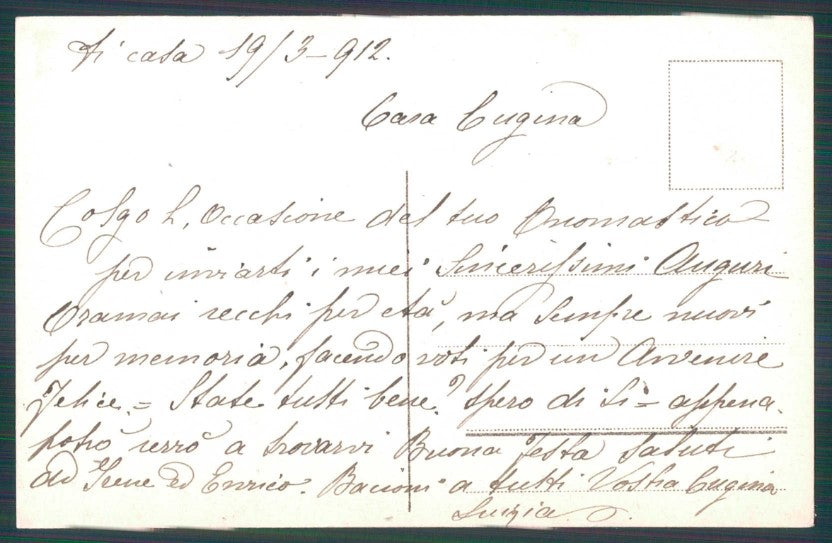 Di casa 19/3-912.
Cara Cugina
Colgo l, Occasione del tuo Onomastico
per inviarti i miei Sincerissimi Auguri
Oramai vecchi per età, ma Sempre nuovi
per memoria, facendo voti per un Avvenire
Felice. = State tutti bene? Spero di Si = appena
potrò verrò a trovarvi Buona Festa Saluti
da Irene ed Enrico. Bacioni a tutti Vostra Cugina